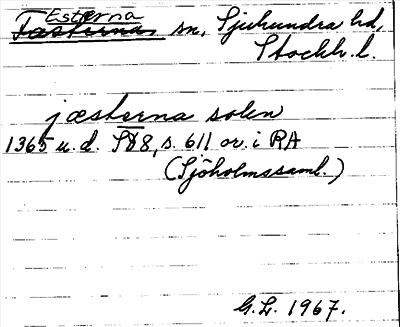 Esterna
Fasterna sn, Sjuhundra hd,
Stockh. l.
jæsterna solen
1365 u. d. SD8, s. 611 or. i RA
(Sjöholmssaml.)
G. L. 1967.